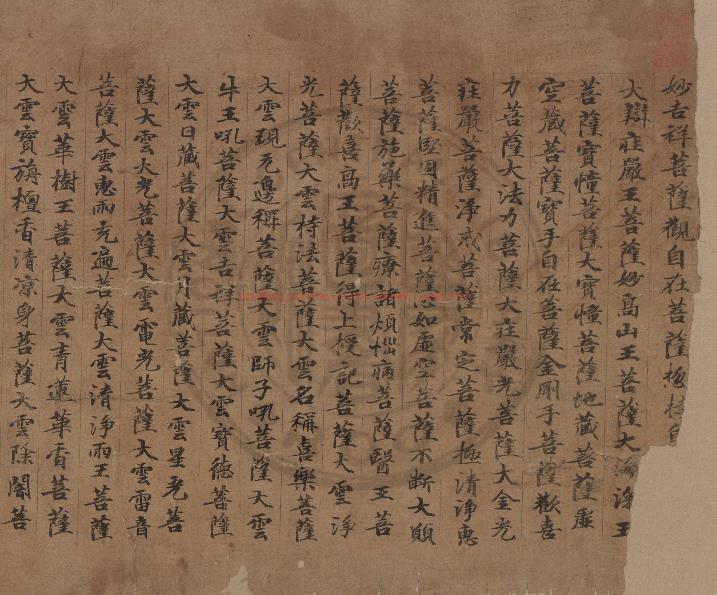 妙吉祥菩薩觀自在菩薩
大辯莊嚴王菩薩妙高山王菩薩大海深王
菩薩寶幢菩薩大寶幢菩薩地藏菩薩虛
空藏菩薩寶手自在菩薩金剛手菩薩歡喜
力菩薩大法力菩薩大莊嚴光菩薩大金光
莊嚴菩薩淨戒菩薩常定菩薩極清淨慧
菩薩堅固精進菩薩心如虛空菩薩不斷大願
菩薩施藥菩薩療諸煩惱病菩薩醫王菩
薩歡喜高王菩薩得上授記菩薩大雲淨
光菩薩大雲持法菩薩大雲名稱喜樂菩薩
大雲現无邊稱菩薩大雲師子吼菩薩大雲
牛王吼菩薩大雲吉祥菩薩大雲寶德菩薩
大雲日藏菩薩大雲月藏菩薩大雲星光菩
薩大雲火光菩薩大雲電光菩薩大雲雷音
菩薩大雲惠雨充遍菩薩大雲清淨雨王菩薩
大雲華樹王菩薩大雲青蓮華香菩薩
大雲寶旃檀香清涼身菩薩大雲除闇菩